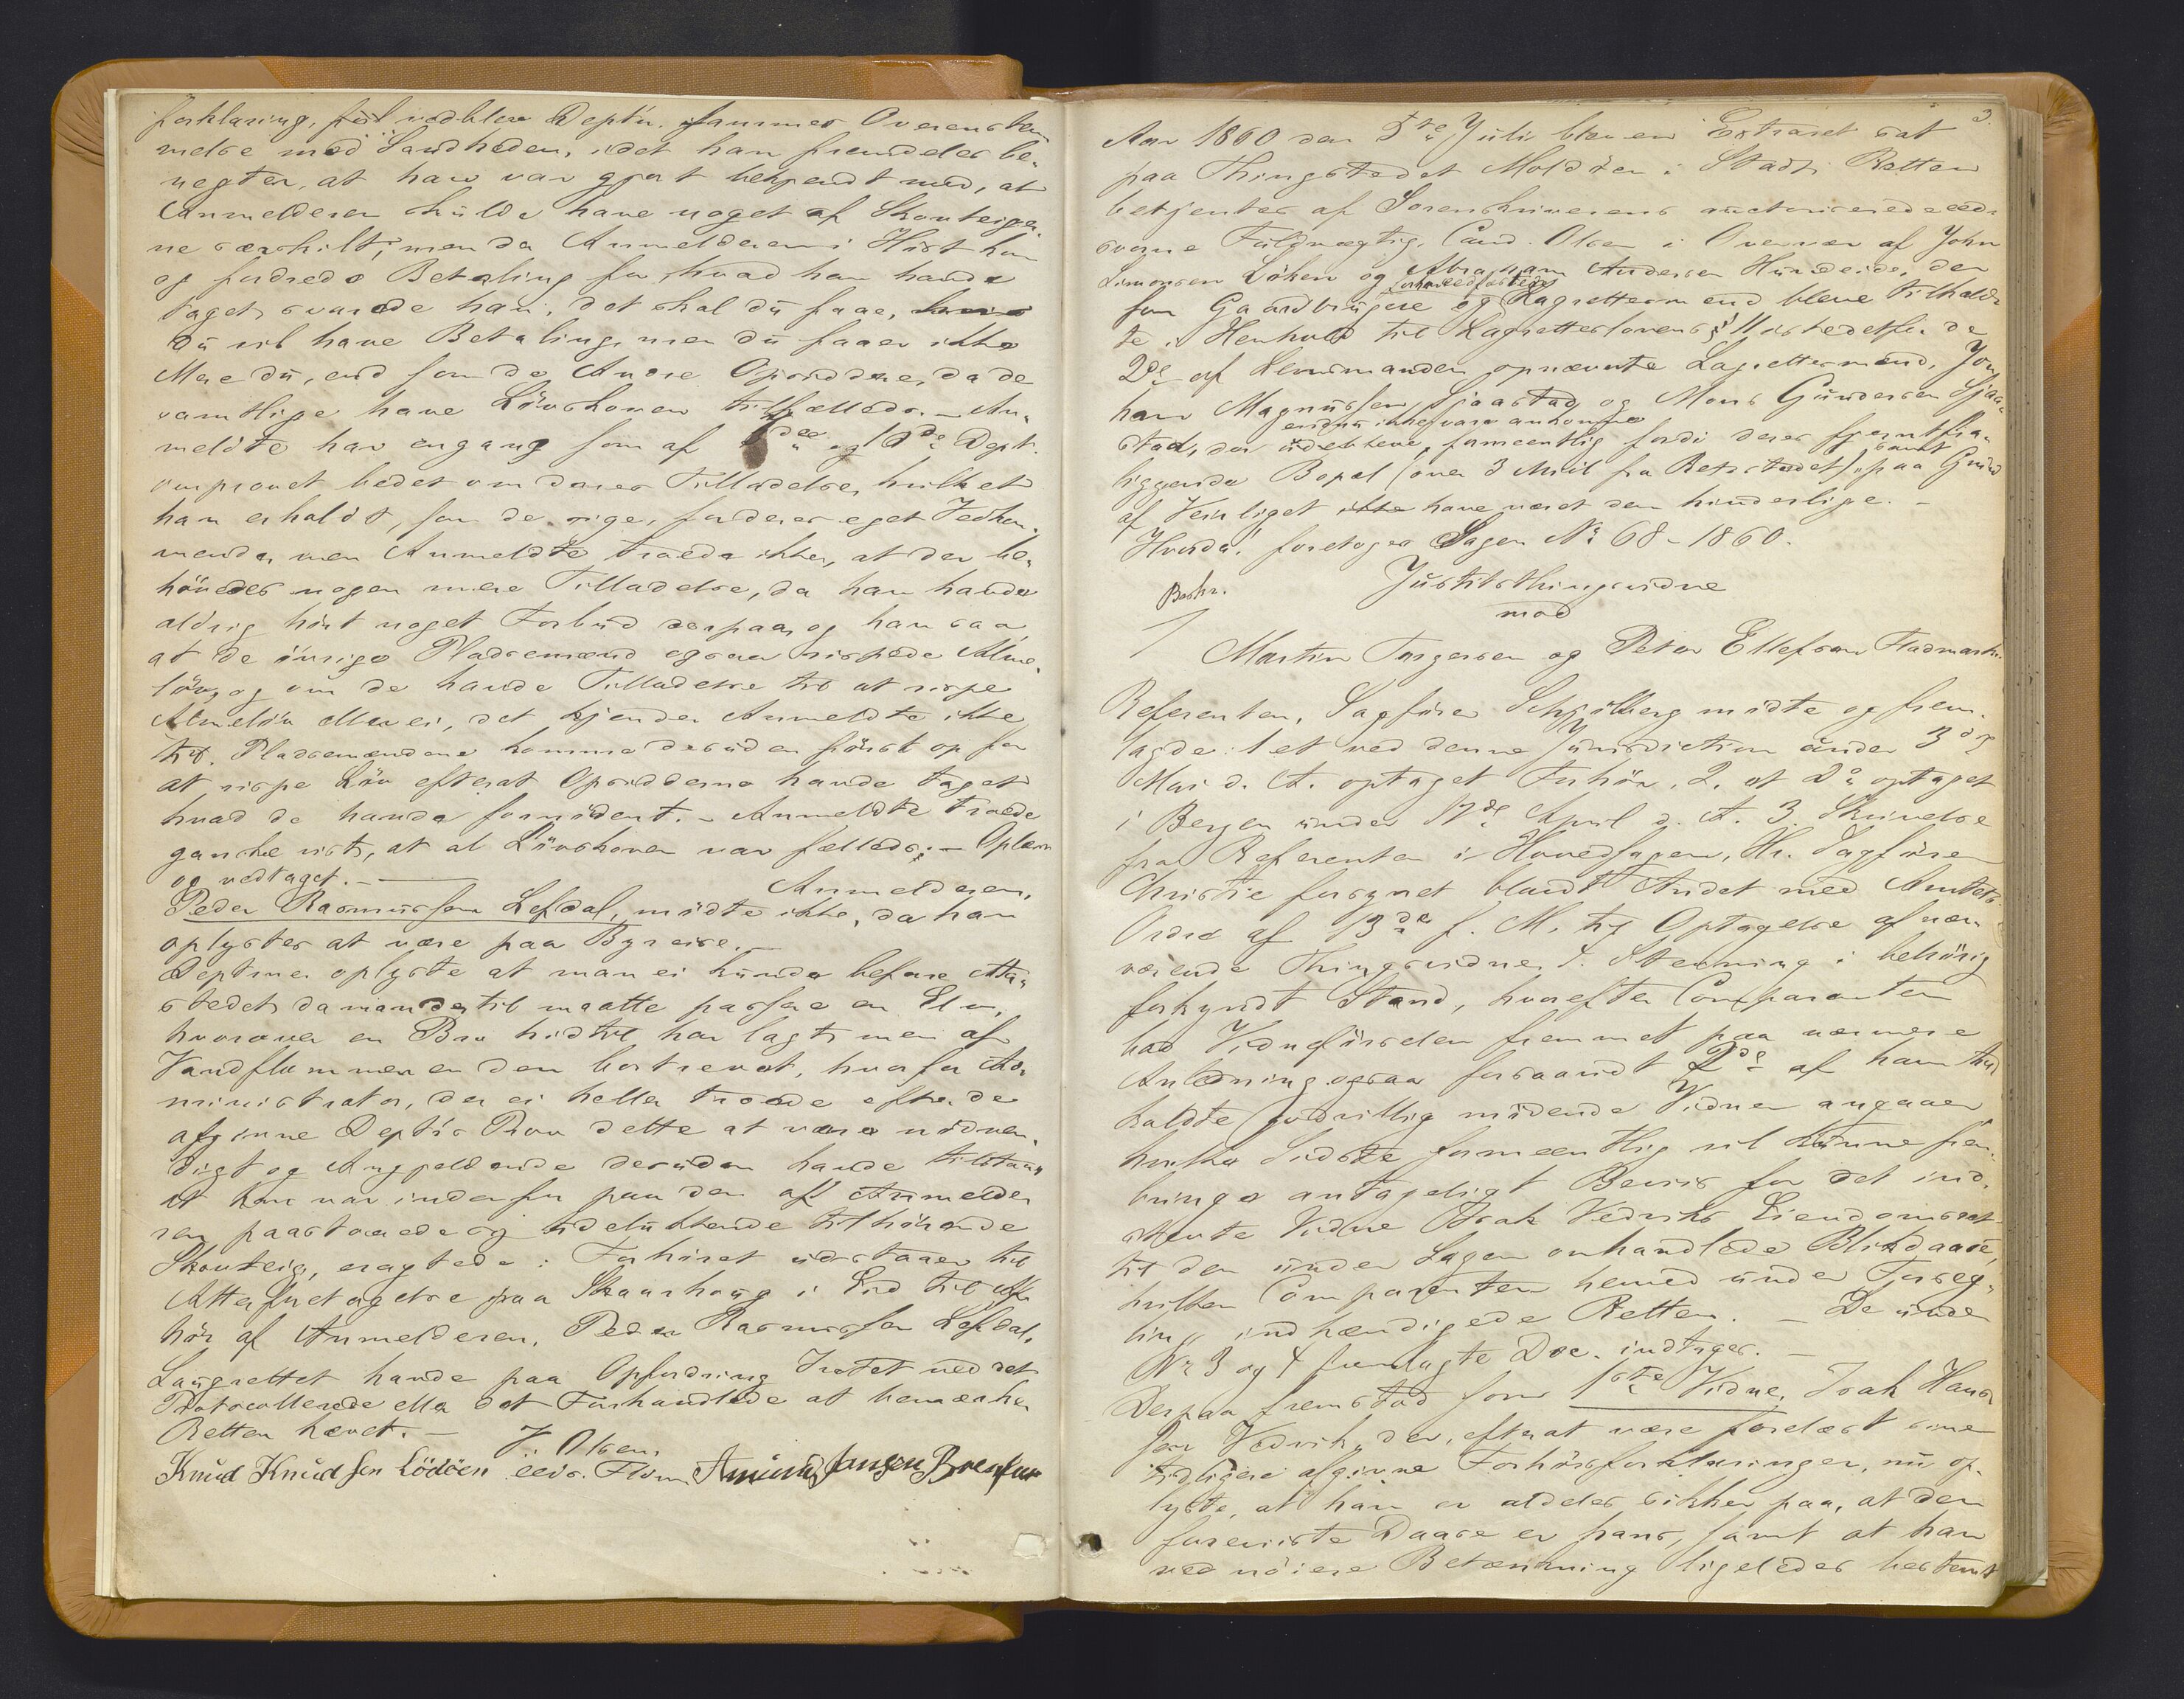 forklaring, fuldvedblev Deptn. sammes Overenstem-
melse med Sandheden, idet han fremdeles be-
negter, at han var gjort bekjendt med, at
Anmelderen skulde have noget af Skovteigen
særskilt; men da Anmelderen i Høst kom
og fordrede Betaling for hvad han havde
taget, svarede han, det skal du faae,
du vil have Betaling, men du faaer ikke
Mere du, end som de Andre Opsiddere, da de
samtlige have Løvskoven tilfælleds. – An-
meldte har engang som af og 13de Dept.
omprovet bedet om deres Tilladelse, hvilket
han erholdt, som de sige, for deres eget Vedkom-
mende, men Anmeldte troede ikke, at der be-
høvedes nogen mere Tilladelse, da han havde
aldrig hørt noget Forbud derpaa, og han saa
at de øvrige Pladsemænd ogsaa rispede Alme-
løv, og om de havde Tilladelse til at rispe
Almeløv eller ei, det kjender Anmeldte ikke
til. Pladsemændene komme desuden først op for
at rispe Løv efterat Opsidderne havde taget
hvad de havde fornødent. – Anmeldte troede
ganske vist, at al Løvskoven var fælleds; – Oplæst
og vedtaget. – Anmelderen,
Peder Rasmussen Lefdal, mødte ikke, da han
oplystes at være paa Byreise. –
Deptne oplyste at man ei kunde befare Aa-
stedet da man dertil maatte passere en Elv,
hvorover en Bro hidtil har lagt, men af
Vandflommen er den bortrevet, hvorfor Ad-
ministrator, der ei heller troede efter de
afgivne Dept's Prov dette at være nødven-
digt og Angjeldende desuden havde tilstaaet
at han var indenfor paa den af Anmelde-
ren paastaaede og udelukkende tilhørende
Skovteig, eragtede: Forhøret udstaaer til
Atterforetagelse paa Skaarhaug i Eid til Af-
hør af Anmelderen, Peder Rasmussen Lefdal.
Laugrettet havde paa Opfordring Intet ved det
Protocollerede eller det Forhandlede at bemærke.
Retten hævet. –
J. Olsen,
Knud Knudsen Lødøen eeds. Fldm. Amund Jensen
3.
Aar 1860 den 5te Juli blev en Extraret sat
paa Thingstedet Moldøen i Stadt. Retten
betjentes af Sorenskriverens autoriserede eed-
svorne Fuldmægtig, Cand. Olsen i Overvær af John
Simonsen Løken og Abraham Andersen Hundeide, der
som Gaardbrugere og eedfæstede Lagrettemænd bleve tilkald-
te i Henhold til Lagretteslovens § 11 istedetfor de
2de af Lensmanden opnævnte Lagrettemænd, Jo-
han Magnussen Sjaastad og Mons Gundersen Sjaa-
stad, der endnu ikke vare ankomne udebleve, formeentlig fordi deres fjerntfra-
liggende Bopæl (over 3 Miil fra Retsstedet), samt paa Grund
af Veirliget have været dem hinderlige. –
Hvorda: foretoges Sagen No 68 – 1860.
Beskr.
Justitsthingsvidne
mod
Martin Torgersen og Peter Ellefsen Fladmark.
Referenten, Sagfører Schjølberg mødte og frem-
lagde: 1 et ved denne Jurisdiction under 3de
Mai d. A. optaget Forhør, 2. et Do optaget
i Bergen under 17de April d. A. 3. Skrivelse
fra Referenten i Hovedsagen, Hr. Sagfører
Christie forsynet blandt Andet med Amtets
Ordre af 13de f. M. til Optagelse af nær-
værende Thingsvidne, 4. Stevning i behørig
forkyndt Stand, hvorefter Comparenten
bad Vidneførselen fremmet paa nærmere
Anledning ogsaa forsaavidt 2de af ham
kaldte godvillig mødende Vidner angaaer
hvilke Sidste formeentlig vil kunne frem-
bringe antageligt Beviis for det ind-
stevnte Vidne Isak Vedviks Eiendomsret
til den under Sagen omhandlede Blikdaase,
hvilken Comparenten hermed under Forseg-
ling indhændigede Retten. – De under
No 3 og 4 fremlagte Doc. indtages. –
Derpaa fremstod som 1ste Vidne, Isak Hans-
sen Vedvik, der, efterat være forelæst sine
tidligere afgivne Forhørsforklaringer, nu op-
lyste, at han er aldeles sikker paa, at den
foreviste Daase er hans, samt at han
ved nøiere Betænkning ligeledes bestemt